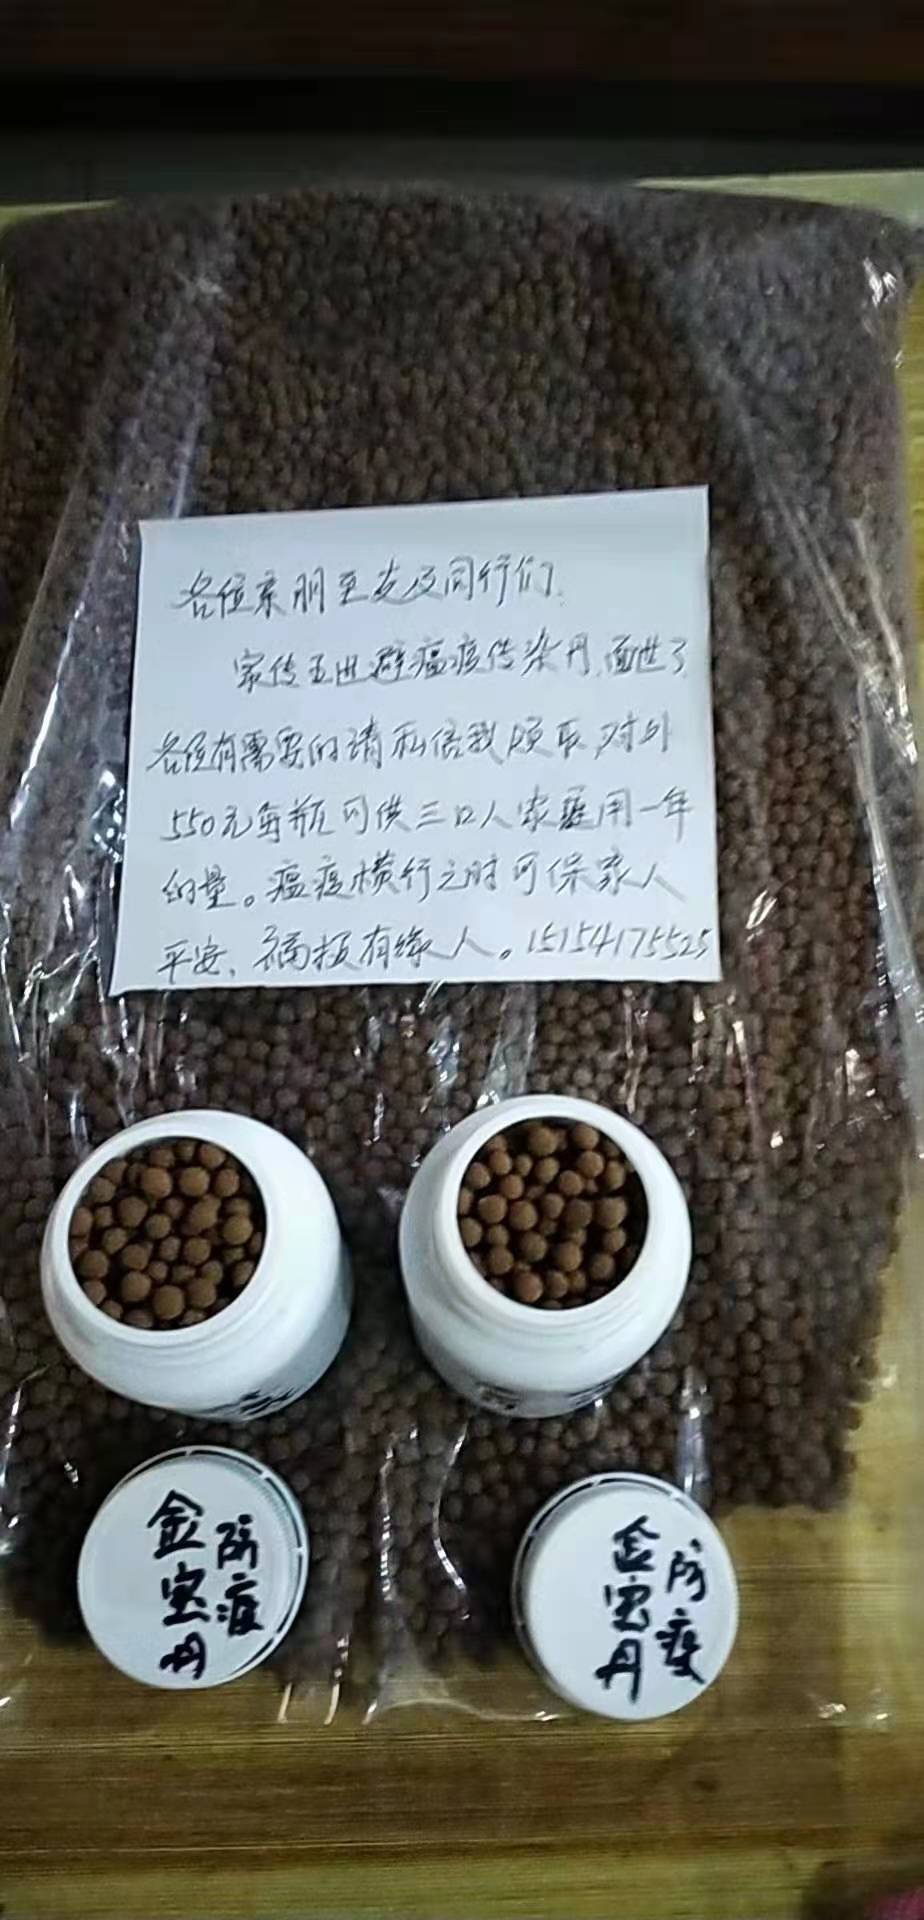 各位亲朋至友及同行们.
家传五世避瘟疫传染丹,面世了
各位有需要的请私信我领取,对外
550元每瓶可供三口人家庭用一年
的量。瘟疫横行之时可保家人
平安、福报有缘人。15154175525
防疫
金宝丹
防疫
金宝丹